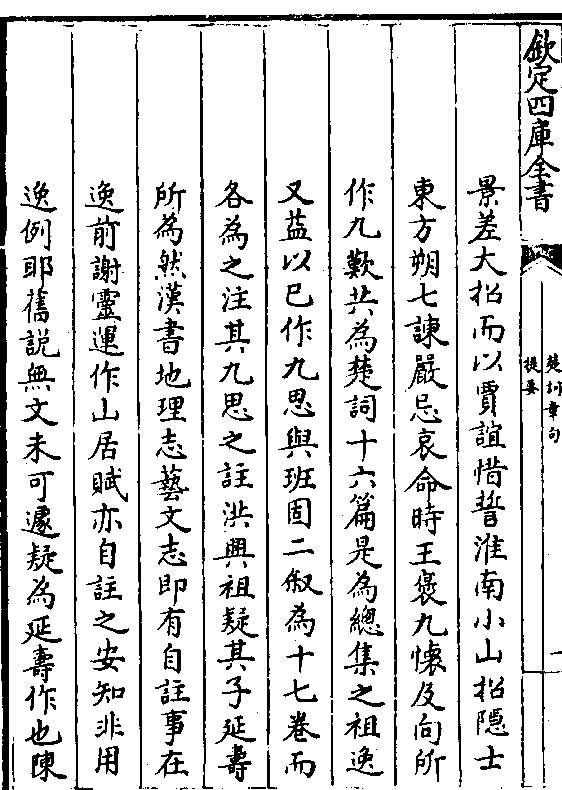 欽定四庫全書
楚詞章句
提要
一
景差大招而以賈誼惜誓淮南小山招隱士
東方朔七諫嚴忌哀命時王襃九懷及向所
作九歎共為楚詞十六篇是為總集之祖逸
又益以已作九思與班固二叙為十七卷而
各為之注其九思之註洪興祖疑其子延壽
所為然漢書地理志藝文志即有自註事在
逸前謝靈運作山居賦亦自註之安知非用
逸例耶舊説無文未可遽疑為延壽作也陳